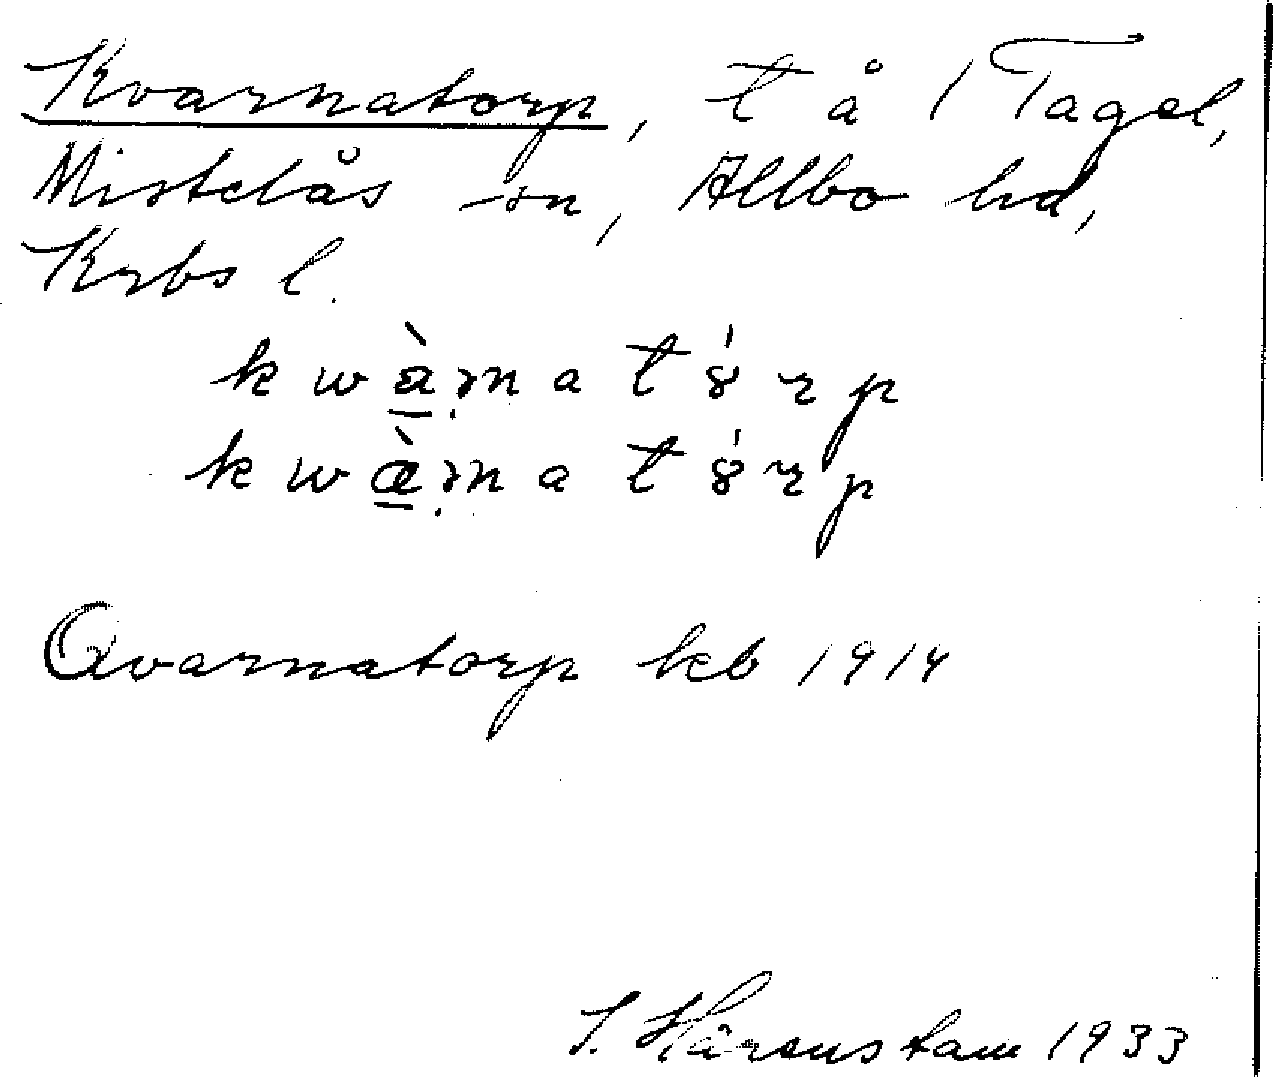 Kvarnatorp, t å 1 Tagel,
Mistelås sn, Allbo hd,
Krbs l.
kwà̱ṛnatȣ́rp
kwæ̱̀ṛnatȣ́rp
Qvarnatorp kb 1914
S. Hårenstam 1933